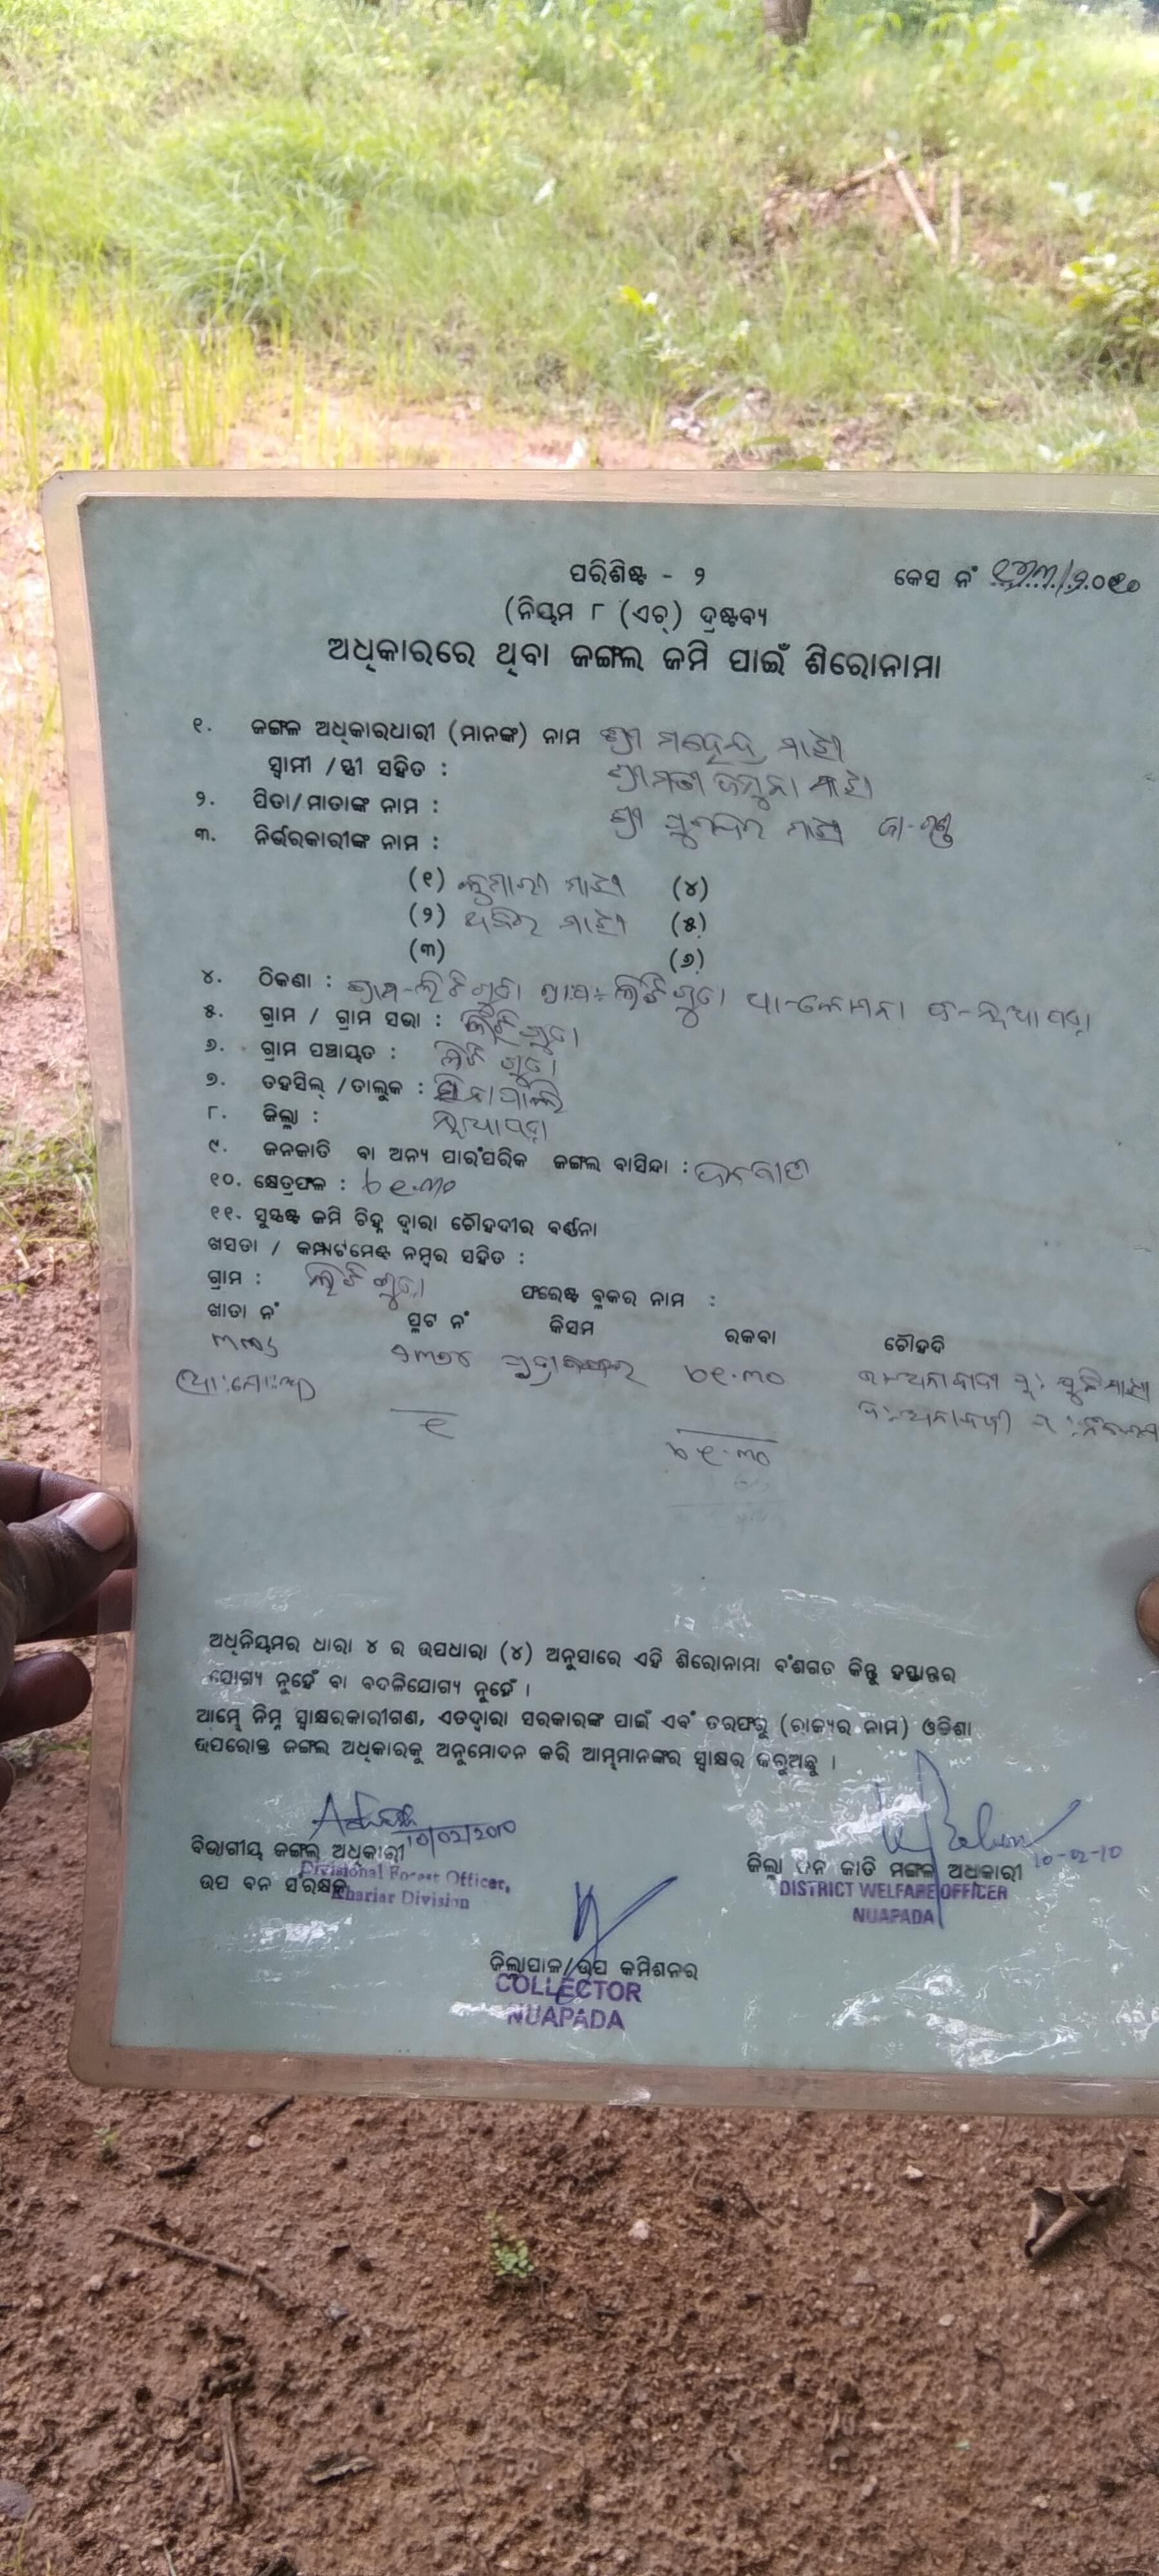 ପରିଶିଷ୍ଟ - ୨ କେସ ନଂ /୨୦୧୦
(ନିୟମ ୮ (ଏଚ୍) ଦ୍ରଷ୍ଟବ୍ୟ
ଅଧିକାରରେ ଥିବା ଜଙ୍ଗଲ ଜମି ପାଇଁ ଶିରୋନାମା
୧. ଜଙ୍ଗଳ ଅଧିକାରଧାରୀ (ମାନଙ୍କ) ନାମ ଶ୍ରୀ ମହେନ୍ଦ୍ର ମାଝୀ
ସ୍ୱାମୀ /ସ୍ତ୍ରୀ ସହିତ : ଶ୍ରୀମତୀ ଜମୁନା ମାଝୀ
୨. ପିତା/ମାତାଙ୍କ ନାମ : ଶ୍ରୀ ମାଝୀ
୩. ନିର୍ଭରକାରୀଙ୍କ ନାମ :
(୧) କୁମାରୀ ମାଝୀ (୪)
(୨) ମାଝୀ (୫)
(୩) (୬)
୪. ଠିକଣା : ଗ୍ରାମ-ଲିଟିଗୁଡା ଲିଟିଗୁଡା ନୂଆପଡ଼ା
୫. ଗ୍ରାମ / ଗ୍ରାମ ସଭା : ଲିଟିଗୁଡା
୬. ଗ୍ରାମ ପଞ୍ଚାୟତ : ଲିଟିଗୁଡା
୭. ତହସିଲ୍ /ତାଲୁକ : ସିନାପାଲି
୮. ଜିଲ୍ଲା : ନୂଆପଡ଼ା
୯. ଜନଜାତି ବା ଅନ୍ୟ ପାରଂପରିକ ଜଙ୍ଗଲ ବାସିନ୍ଦା : ଜନଜାତି
୧୦. କ୍ଷେତ୍ରଫଳ : ୪୧.୩୦
୧୧. ସୁସ୍ପଷ୍ଟ ଜମି ଚିହ୍ନ ଦ୍ୱାରା ଚୌହଦୀର ବର୍ଣ୍ଣନା
ଖସଡା / କମ୍ପାର୍ଟମେଣ୍ଟ ନମ୍ବର ସହିତ :
ଗ୍ରାମ : ଲିଟିଗୁଡା ଫରେଷ୍ଟ ବ୍ଳକର ନାମ :
ଖାତା ନଂ ପ୍ଲଟ ନଂ କିସମ ରକବା ଚୌହଦି
୪୧.୩୦
୧
୪୧.୩୦
ଅଧିନିୟମର ଧାରା ୪ ର ଉପଧାରା (୪) ଅନୁସାରେ ଏହି ଶିରୋନାମା ବଂଶଗତ କିନ୍ତୁ ହସ୍ତାନ୍ତର
ଯୋଗ୍ୟ ନୁହେଁ ବା ବଦଳିଯୋଗ୍ୟ ନୁହେଁ ।
ଆମ୍ଭେ ନିମ୍ନ ସ୍ୱାକ୍ଷରକାରୀଗଣ, ଏତଦ୍ୱାରା ସରକାରଙ୍କ ପାଇଁ ଏବଂ ତରଫରୁ (ରାଜ୍ୟର ନାମ) ଓଡିଶା
ଉପରୋକ୍ତ ଜଙ୍ଗଲ ଅଧିକାରକୁ ଅନୁମୋଦନ କରି ଆମ୍ଭମାନଙ୍କର ସ୍ୱାକ୍ଷର କରୁଅଛୁ ।
10/02/2010
ବିଭାଗୀୟ ଜଙ୍ଗଲ ଅଧିକାରୀ
Divisional Forest Officer,
ଉପ ବନ ସଂରକ୍ଷକ
Khariar Division
10-02-10
ଜିଲ୍ଲା ଜନ ଜାତି ମଙ୍ଗଳ ଅଧିକାରୀ
DISTRICT WELFARE OFFICER
NUAPADA
ଜିଲ୍ଲାପାଳ/ଉପ କମିଶନର
COLLECTOR
NUAPADA